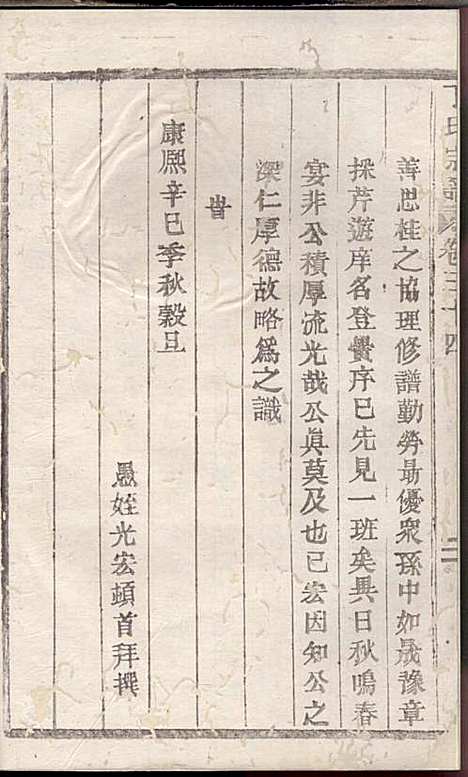 善思桂之協理修譜勤勞最優衆孫中如晟豫章
採芹遊庠名登黌序已先見一班矣異日秋鳴春
宴非公積厚流光哉公眞莫及也已宏因知公之
深仁厚德故略爲之識
旹
康熙辛巳季秋穀旦
愚姪光宏頓首拜撰